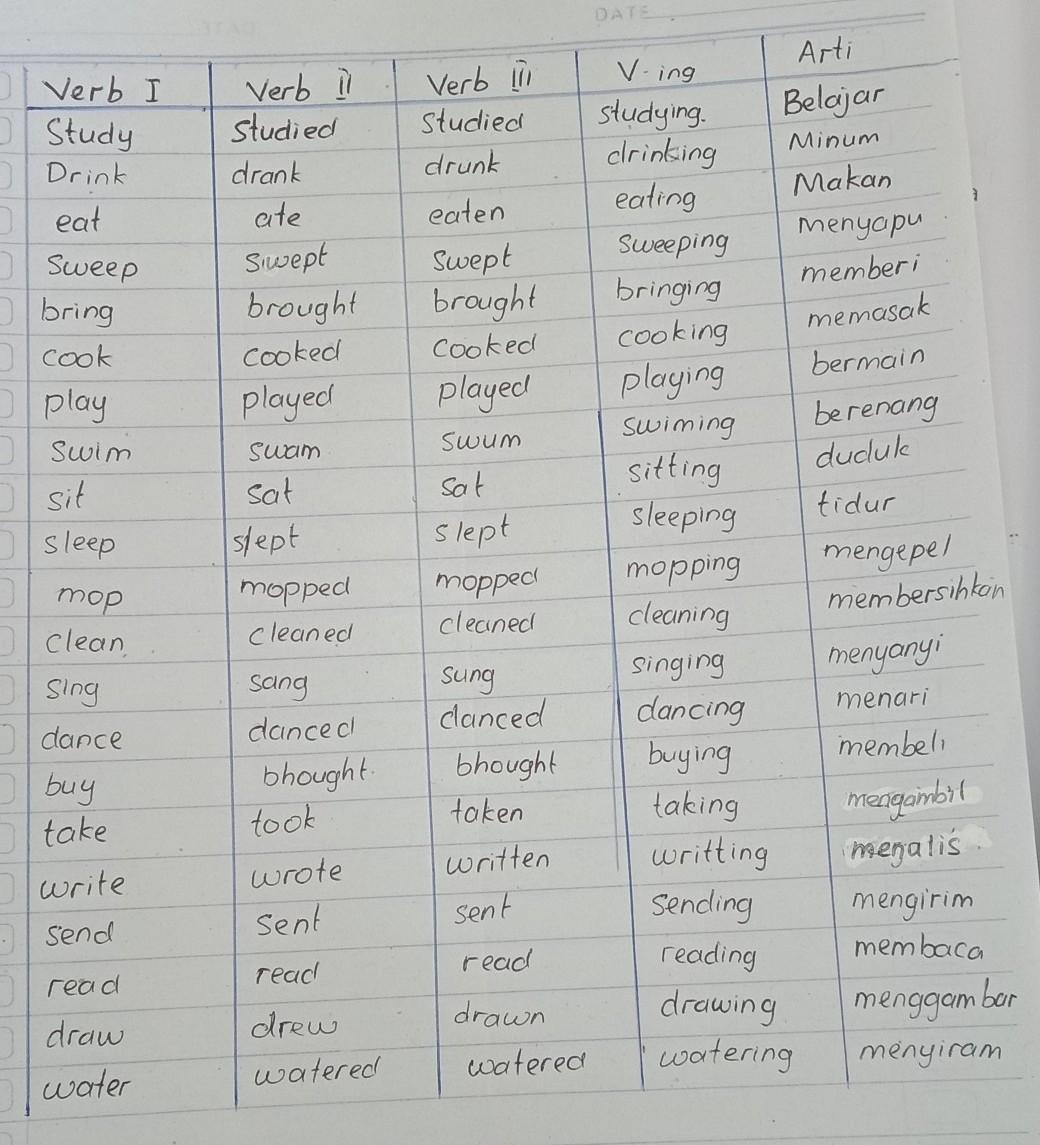 DATE
Verb I Verb II Verb III V-ing Arti
Study Studied Studied studying. Belajar
Drink drank drunk drinking Minum
eat ate eaten eating Makan
Sweep swept swept sweeping menyapu
bring brought brought bringing memberi
cook cooked cooked cooking memasak
play played played playing bermain
swim swam swum swiming berenang
sit sat sat sitting duduk
sleep slept slept sleeping tidur
mop mopped mopped mopping mengepel
clean cleaned cleaned cleaning membersihkan
sing sang sung singing menyanyi
dance danced danced dancing menari
buy bhought. bhought buying membeli
take took taken taking mengambil
write wrote written writting menalis
send sent sent sending mengirim
read read read reading membaca
draw drew drawn drawing menggambar
water watered watered watering menyiram